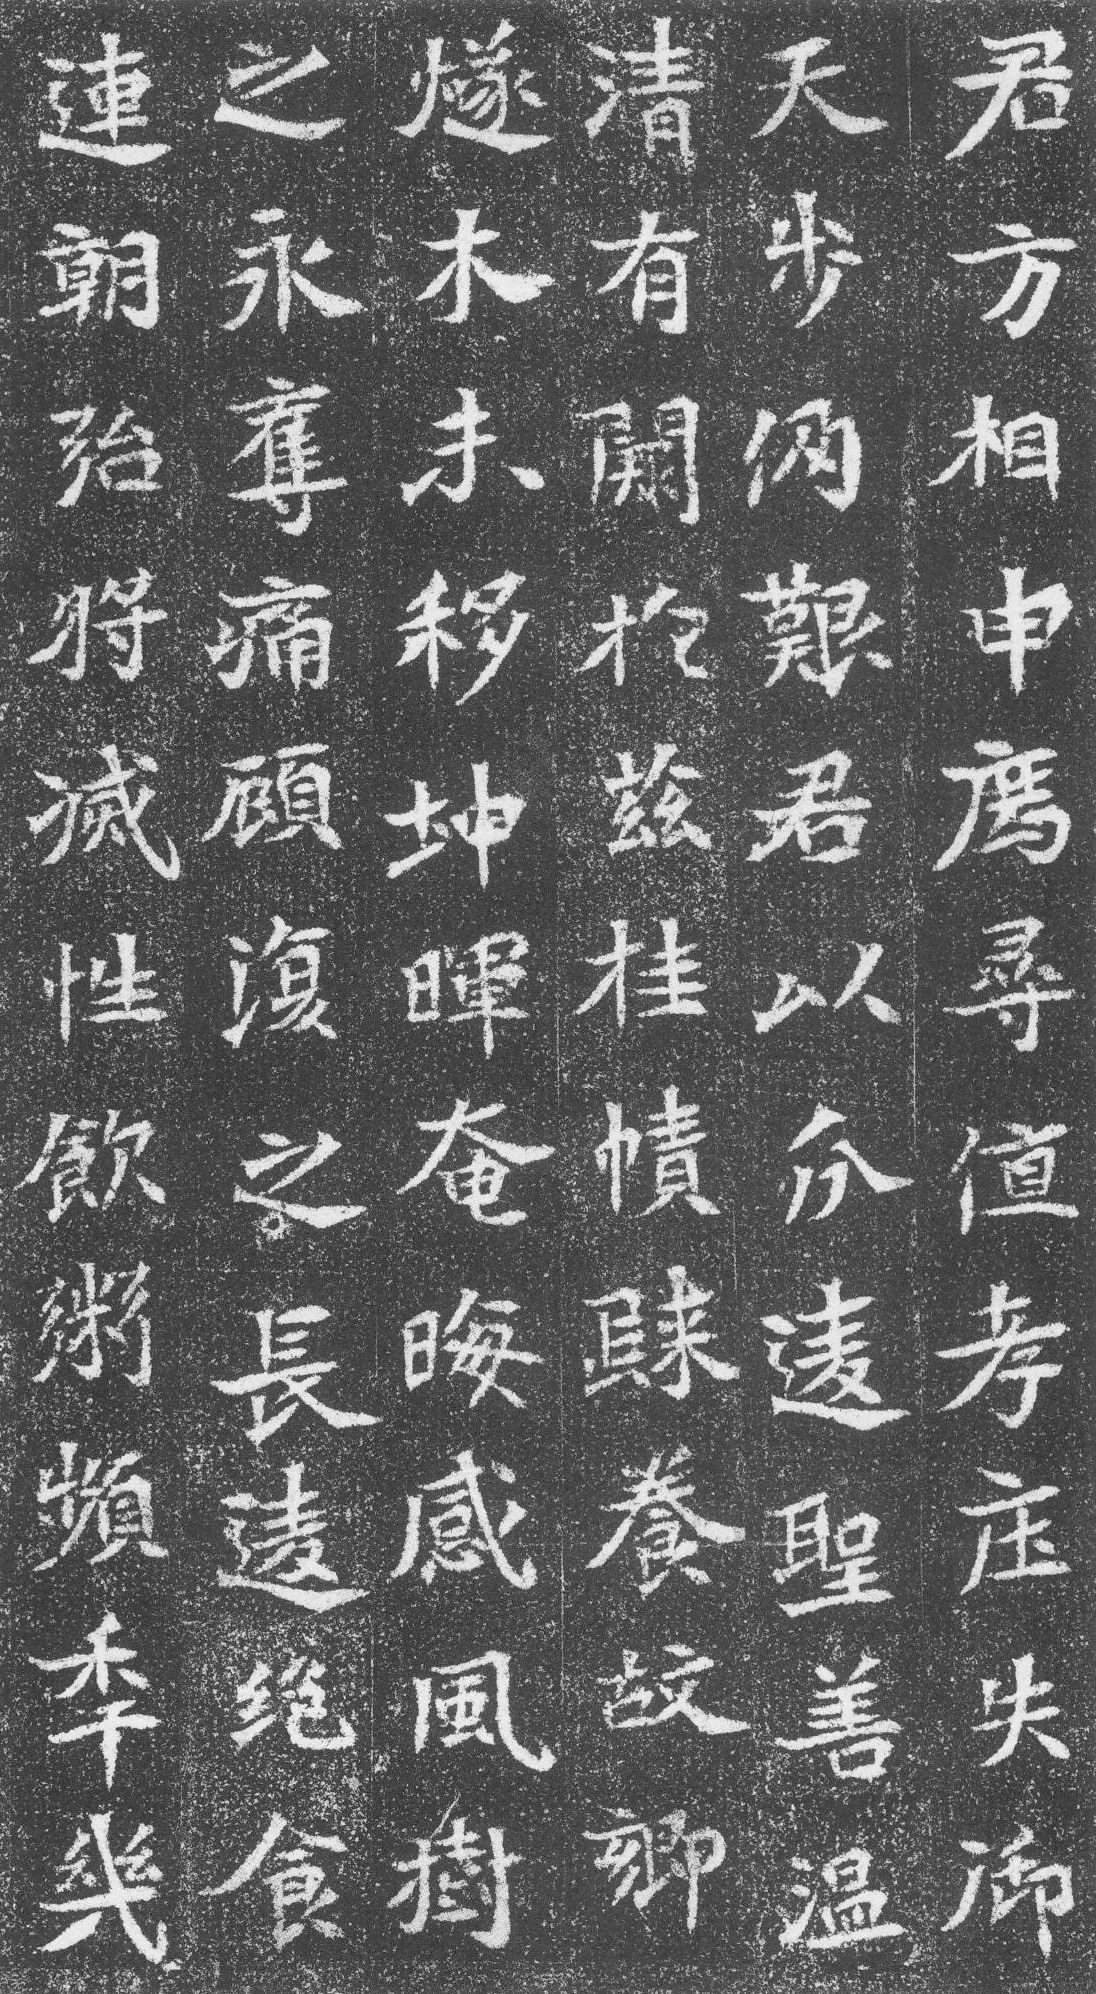 君方相申薦尋值孝庄失御
天步艱君以介逺聖善溫
清有闕扵兹桂幘歸養故鄉
燧木未移坤暉奄晦感風樹
之永奪痛顧復之長逺絶食
連朝殆將滅性飲粥頻年幾